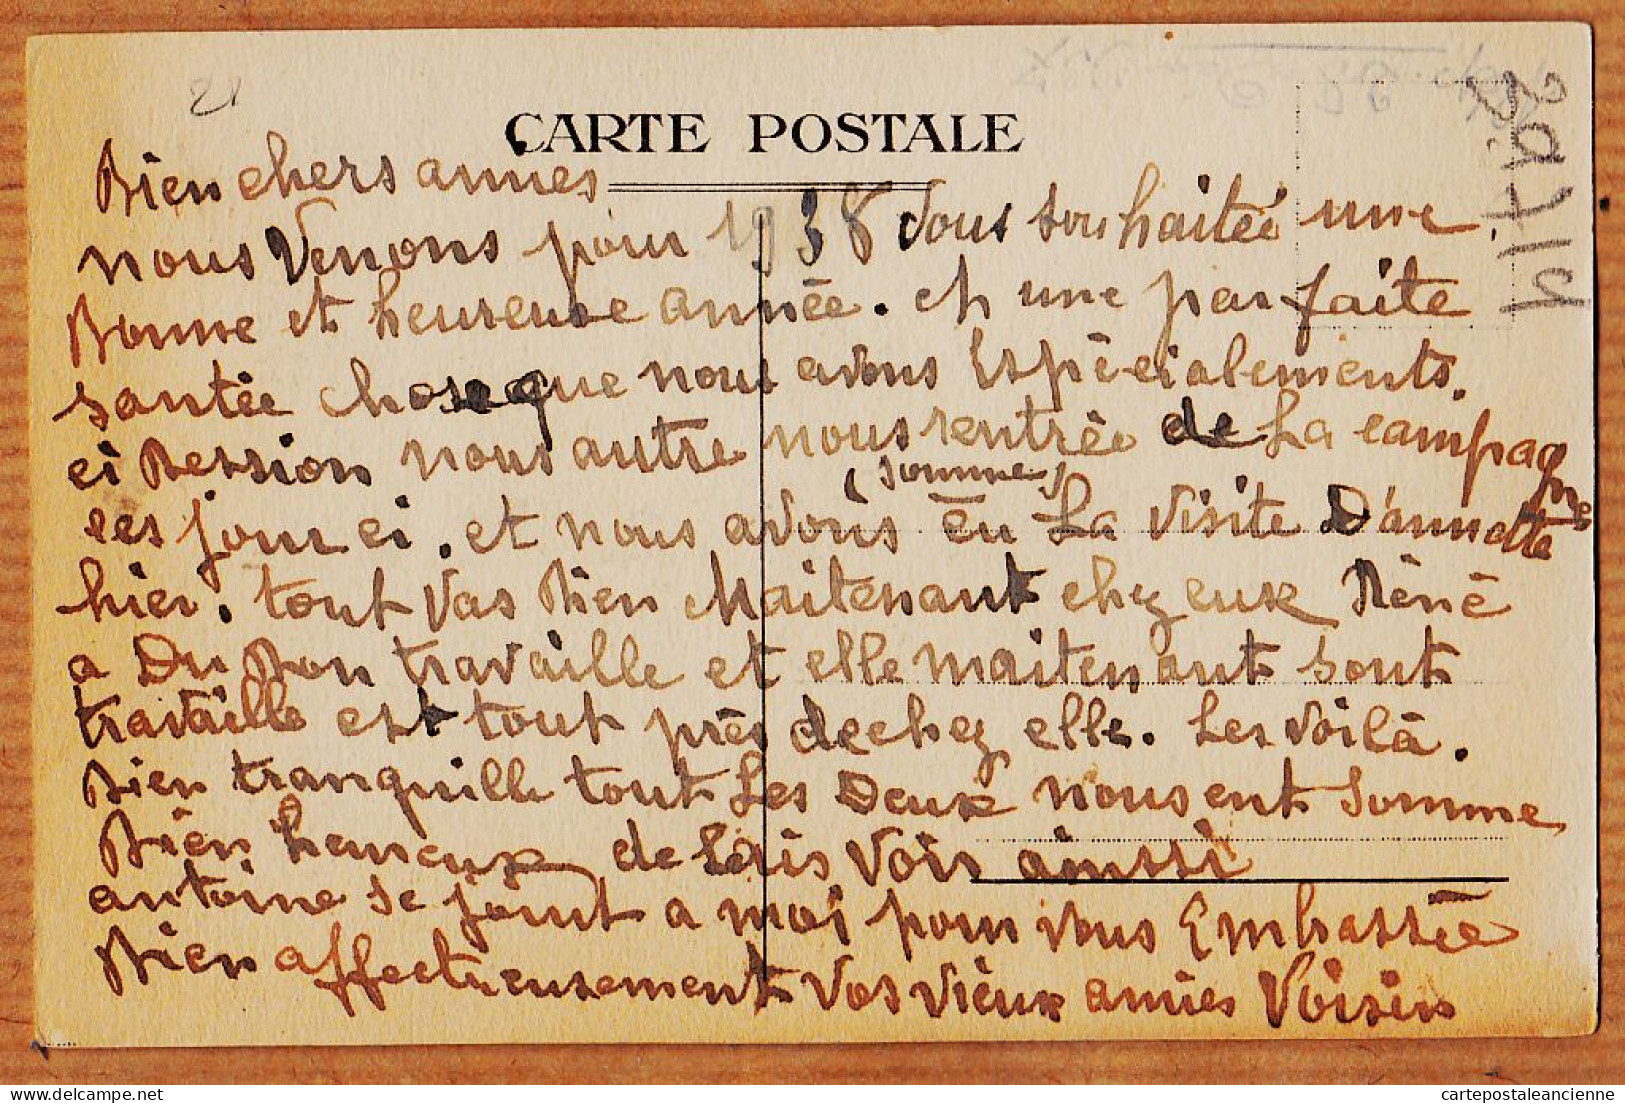 21
CARTE POSTALE
Bien chers amies
nous Venons pour 1938 Vous souhaitée une
Bonne et heureuse année. et une parfaite
santée chose que nous avons Espècialements.
ci Bession nous autre nous rentrée de La campagne
(somme)
ces jour ci. et nous avons eu La Visite D'annette
hier. tout Vas Bien Maitenant chez eux Rènè
a Du Bon travaille et elle maitenant sont
travaille est tout près de chez elle. Les Voilà.
Bien tranquille tout Les Deux nous ent somme
Bien heureux de Leis Voir ainssi
antoine se joint a moi pour vous Embassée
Bien affectueusement Vos vieux amies Voisin
cartepostaleancienne